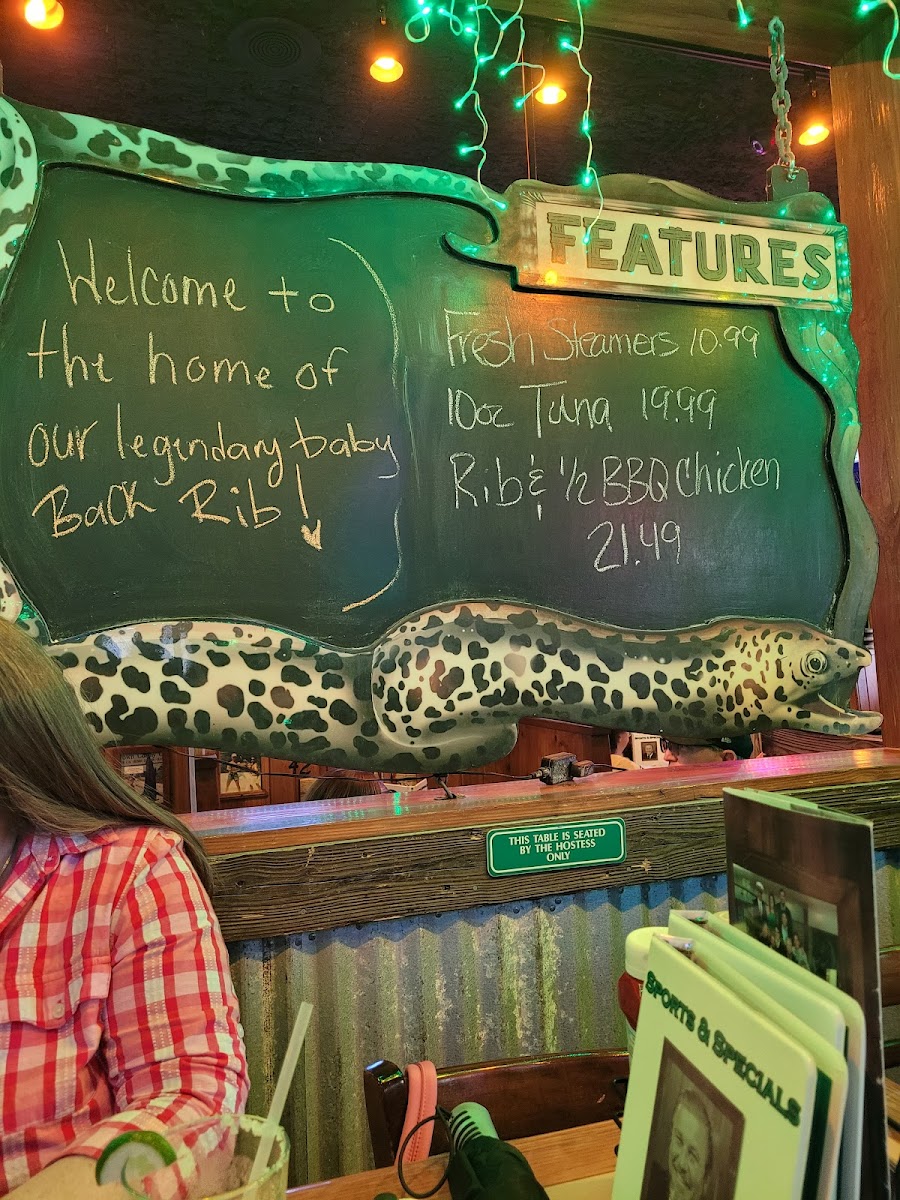 Welcome to
the home of
our legendary baby
Back Rib!
FEATURES
Fresh Steamers 10.99
10oz Tuna 19.99
Rib & 1/2 BBQ Chicken
21.49
THIS TABLE IS SEATED
BY THE HOSTESS
ONLY
SPORTS & SPECIALS